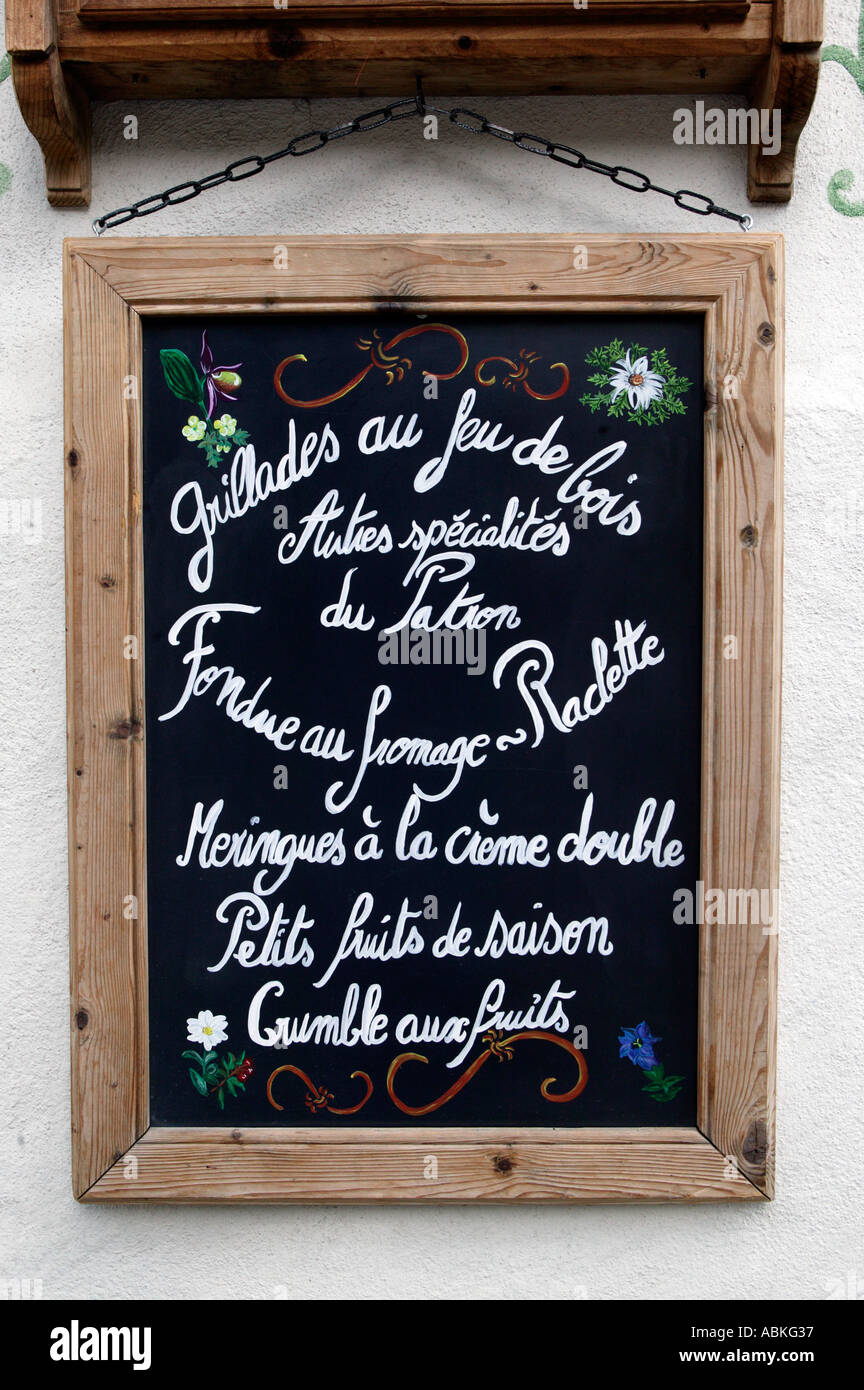 Grillades au feu de bois
Autres spécialités
du Patron
Fondue au fromage ~ Raclette
Meringues à la crème double
Petits fruits de saison
Crumble aux fruits
alamy
Image ID: ABKG37
www.alamy.com